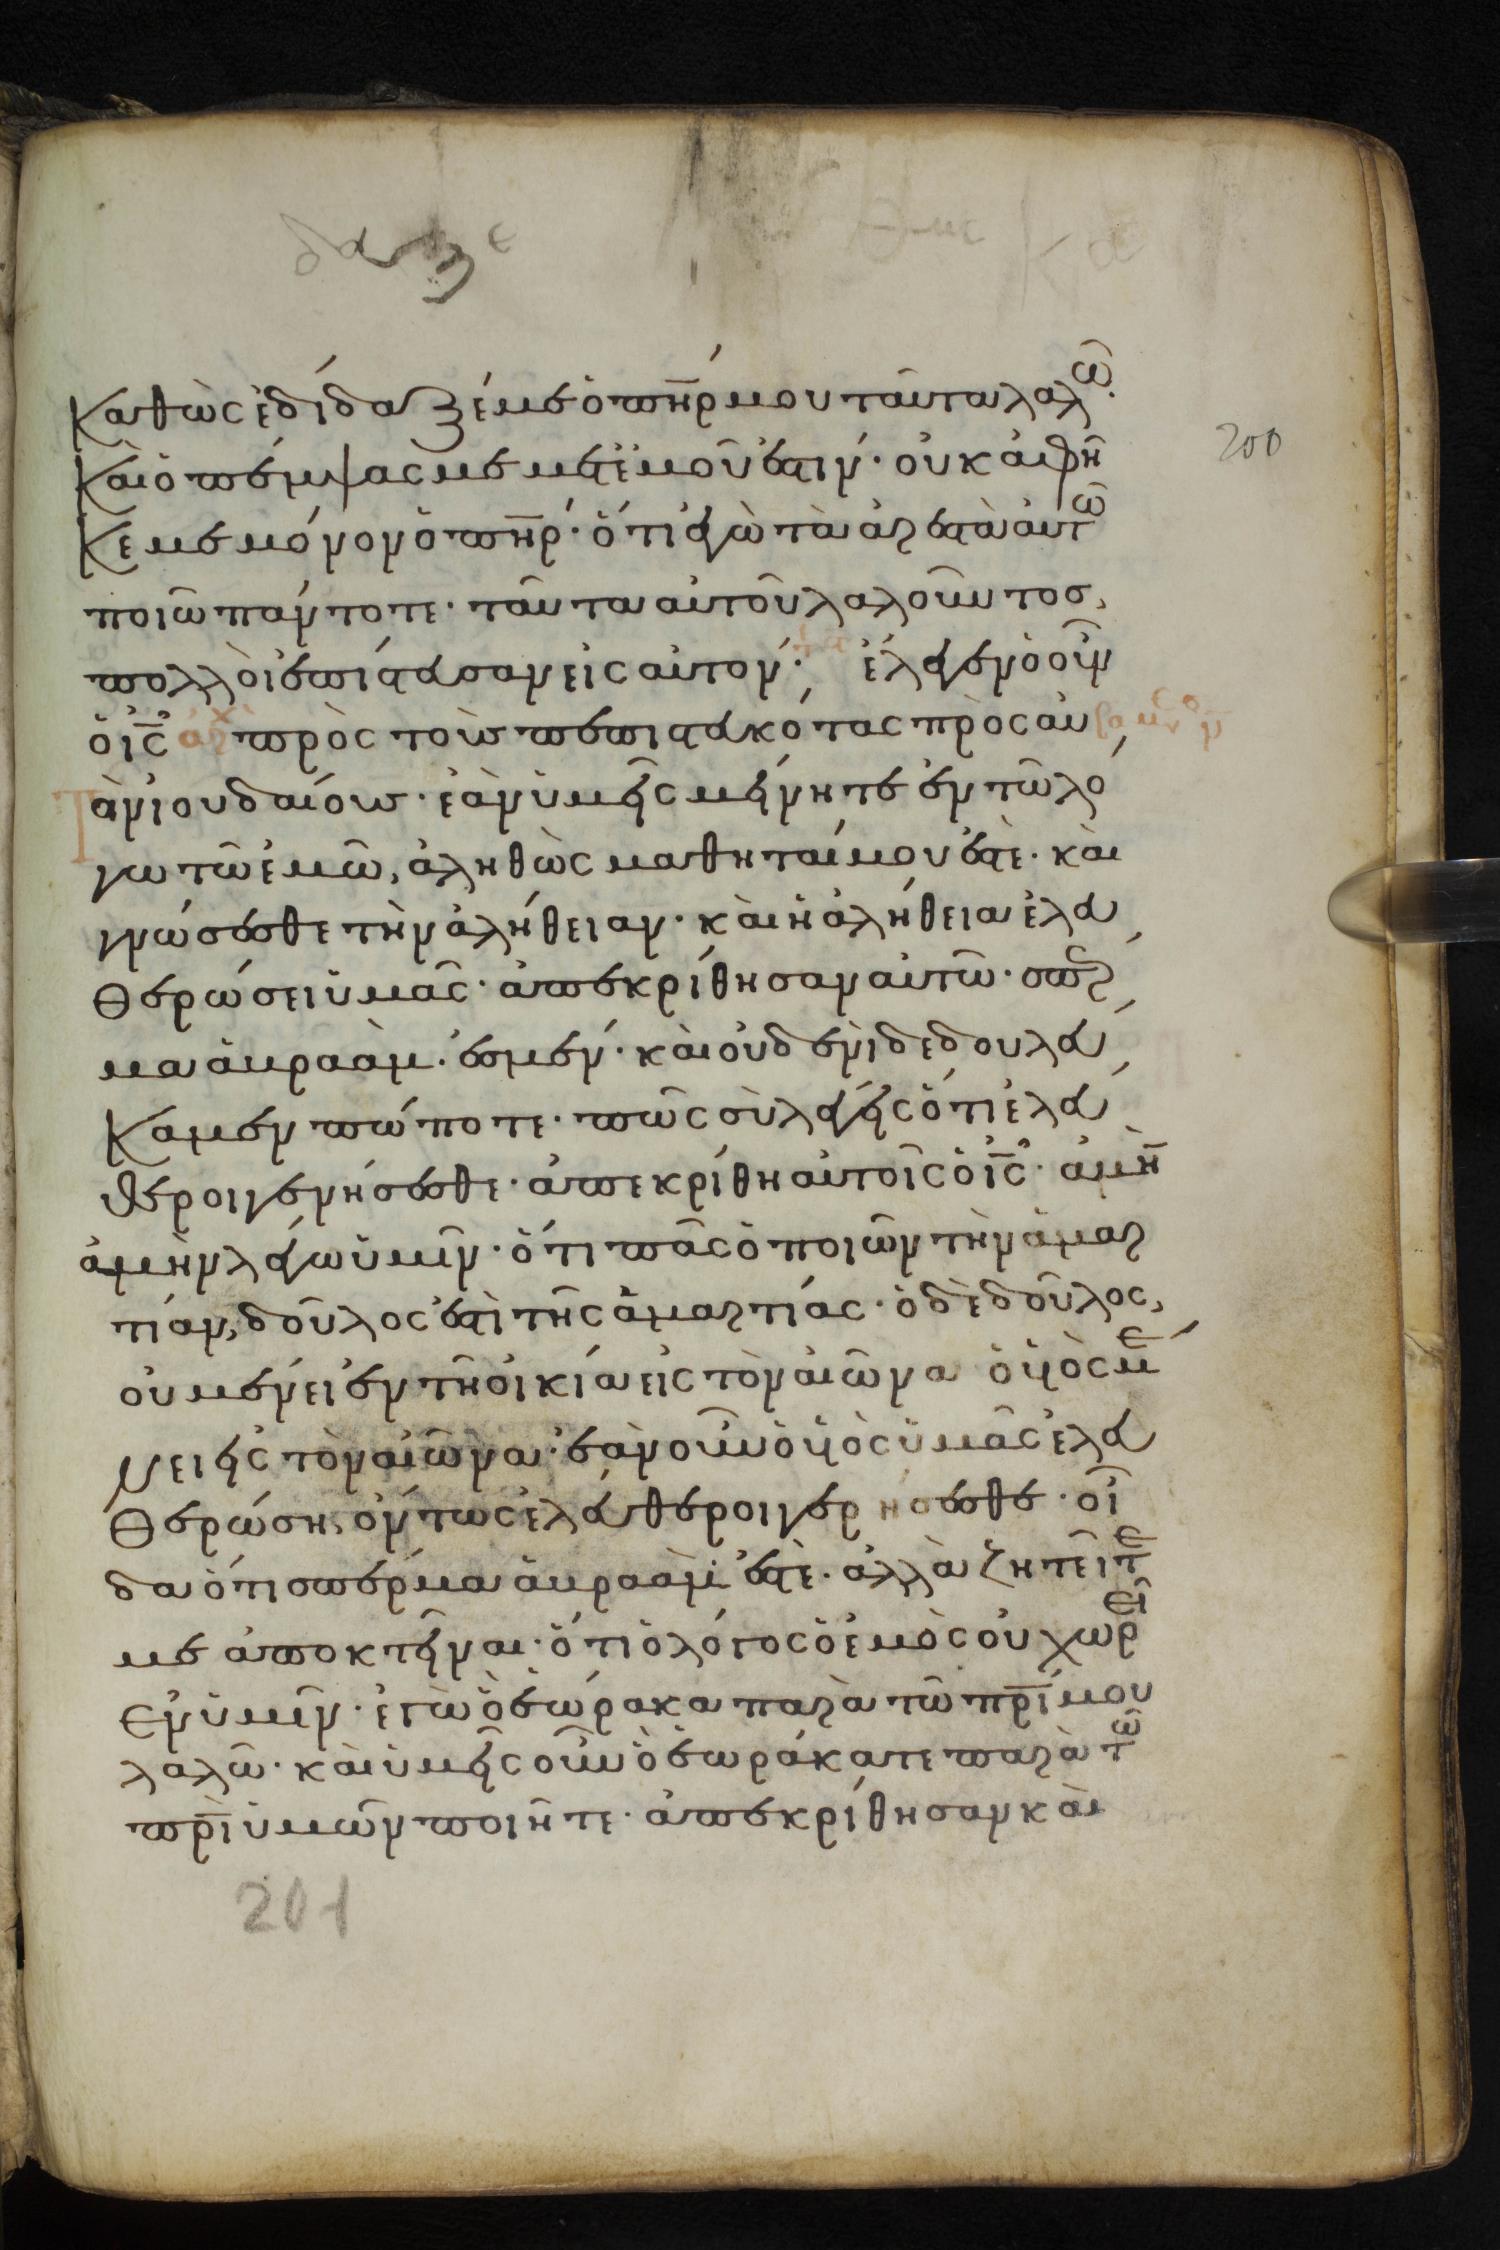 200
καθὼς ἐδίδαξέ με ὁ πη̅ρ μου ταῦτα λαλῶ.
καὶ ὁ πέμψας με μετ' ἐμοῦ ἐστιν· οὐκ ἀφῆ
κέ με μόνον ὁ πη̅ρ· ὅτι ἐγὼ τὰ ἀρεστὰ αὐτῶ
ποιῶ πάντοτε· ταῦτα αὐτοῦ λαλοῦντος,
πολλοὶ ἐπίστευσαν εἰς αὐτόν· ἔλεγεν οὖν
ὁ ις̅ πρὸς τοὺς πεπιστευκότας πρὸς αυ
τὸν ἰουδαίους· ἐὰν ὑμεῖς μείνητε ἐν τῶ λό
γω τῶ ἐμῶ, ἀληθῶς μαθηταί μου ἐστὲ· καὶ
γνώσεσθε τὴν ἀλήθειαν· καὶ ἡ ἀλήθεια ἐλευ
θερώσει ὑμᾶς· ἀπεκρίθησαν αὐτῶ· σπέρ
μα ἀβραάμ ἐσμεν· καὶ οὐδενὶ δεδουλεύ
καμεν πώποτε· πῶς σὺ λέγεις ὅτι ἐλεύ
θεροι γενήσεσθε· ἀπεκρίθη αὐτοῖς ὁ ις̅· ἀμὴν
ἀμὴν λέγω ὑμῖν· ὅτι πᾶς ὁ ποιῶν τὴν ἁμαρ
τίαν, δοῦλος ἐστὶ τῆς ἁμαρτίας· ὁ δὲ δοῦλος,
οὐ μένει ἐν τῆ οἰκία εἰς τὸν αἰῶνα ὁ υἱὸς μέ
νει εἰς τὸν αἰῶνα· ἐὰν οὖν ὁ υἱὸς ὑμᾶς ἐλευ
θερώση, ὄντως ἐλεύθεροι γενήσεσθε· οἶ
δα ὅτι σπέρμα ἀβραάμ ἐστὲ· ἀλλὰ ζητεῖτέ
με ἀποκτεῖναι· ὅτι ὁ λόγος ὁ ἐμὸς οὐ χωρεῖ
ἐν ὑμῖν· ἐγὼ ὃ ἑώρακα παρὰ τῶ πρι̅ μου
λαλῶ· καὶ ὑμεῖς οὖν ὃ ἑωράκατε παρὰ τῶ
πρι̅ ὑμῶν ποιεῖτε· ἀπεκρίθησαν καὶ
201